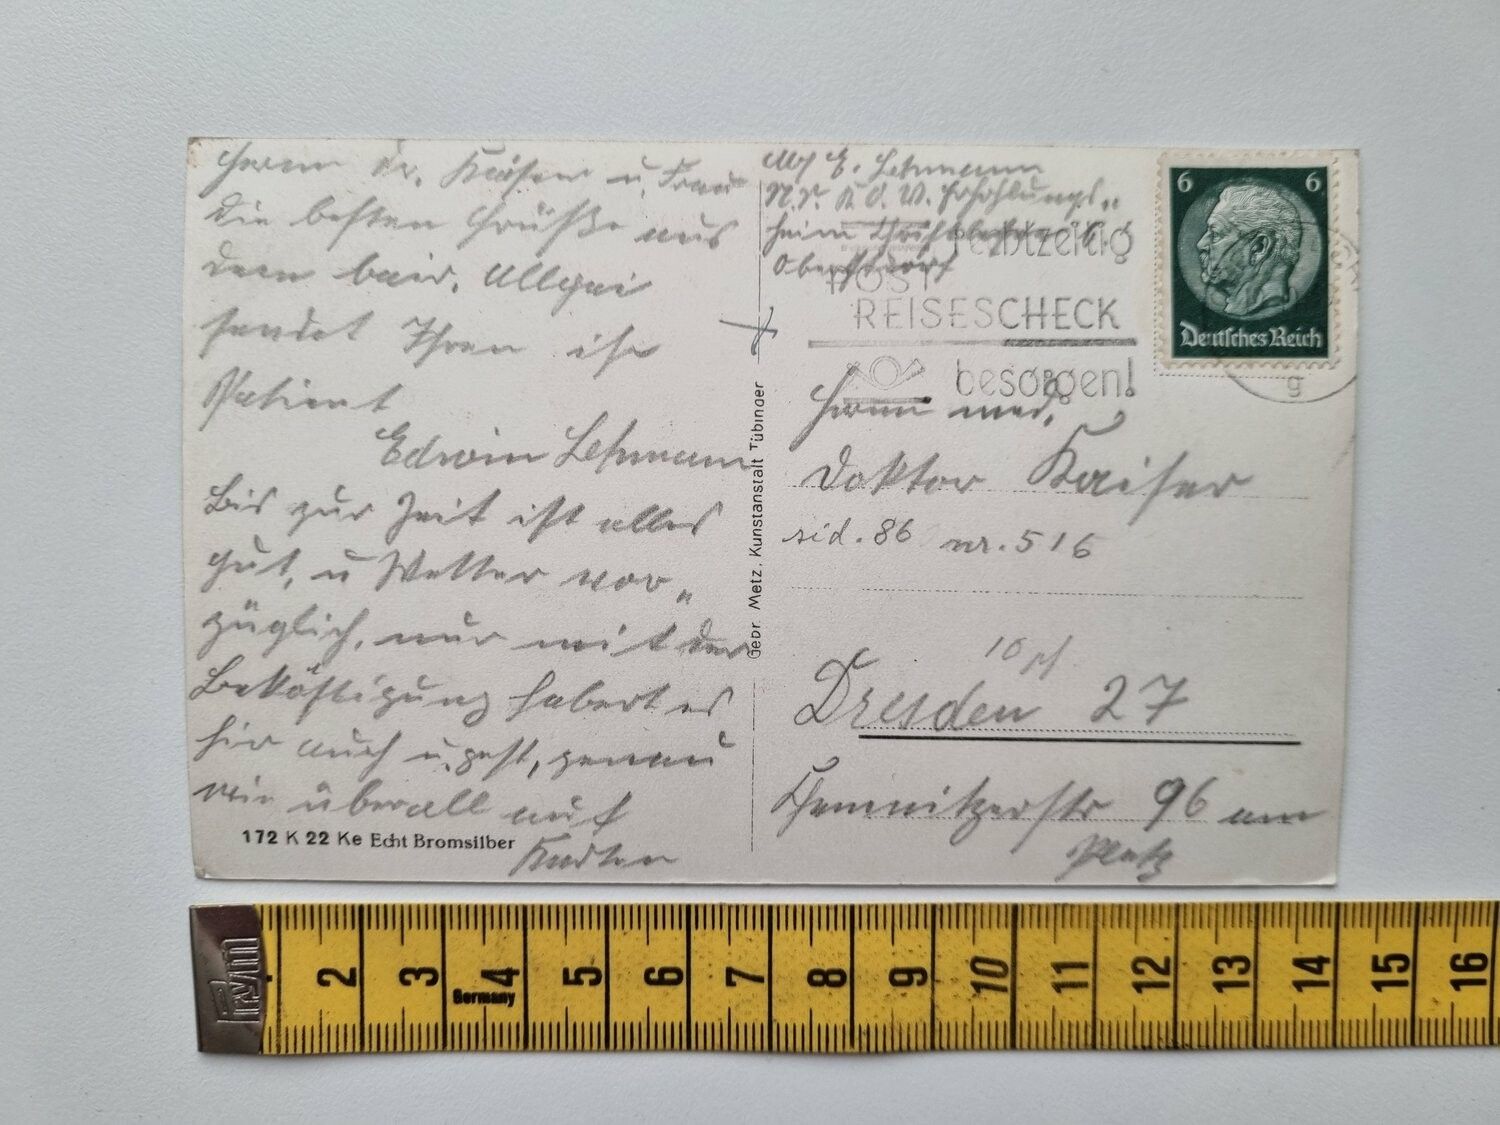 Herrn Dr. Kaiser u. Frau
die besten Grüße aus
dem bair. Allgäu
sendet Ihnen ihr
Patient
Edwin Lehmann
Bis zur Zeit ist alles
gut, u Wetter vor„
züglich, nur mit der
Beköstigung habert es
hir auch u. zwar, genau
wie überall auf
Karten
172 K 22 Ke Echt Bromsilber
Gebr. Metz, Kunstanstalt Tübingen
Abs E. Lehmann
N.S. K.O.V. Erholungs„
heim
Oberstdorf
rechtzeitig
POST
REISESCHECK
besorgen!
6 6
Deutsches Reich
g
Herrn med.
Doktor Kaiser
sid. 86 nr. 516
10 pf
Dresden 27
Chemnitzerstr 96 am
Platz
Prym
2 3 4 5 6 7 8 9 10 11 12 13 14 15 16
Germany